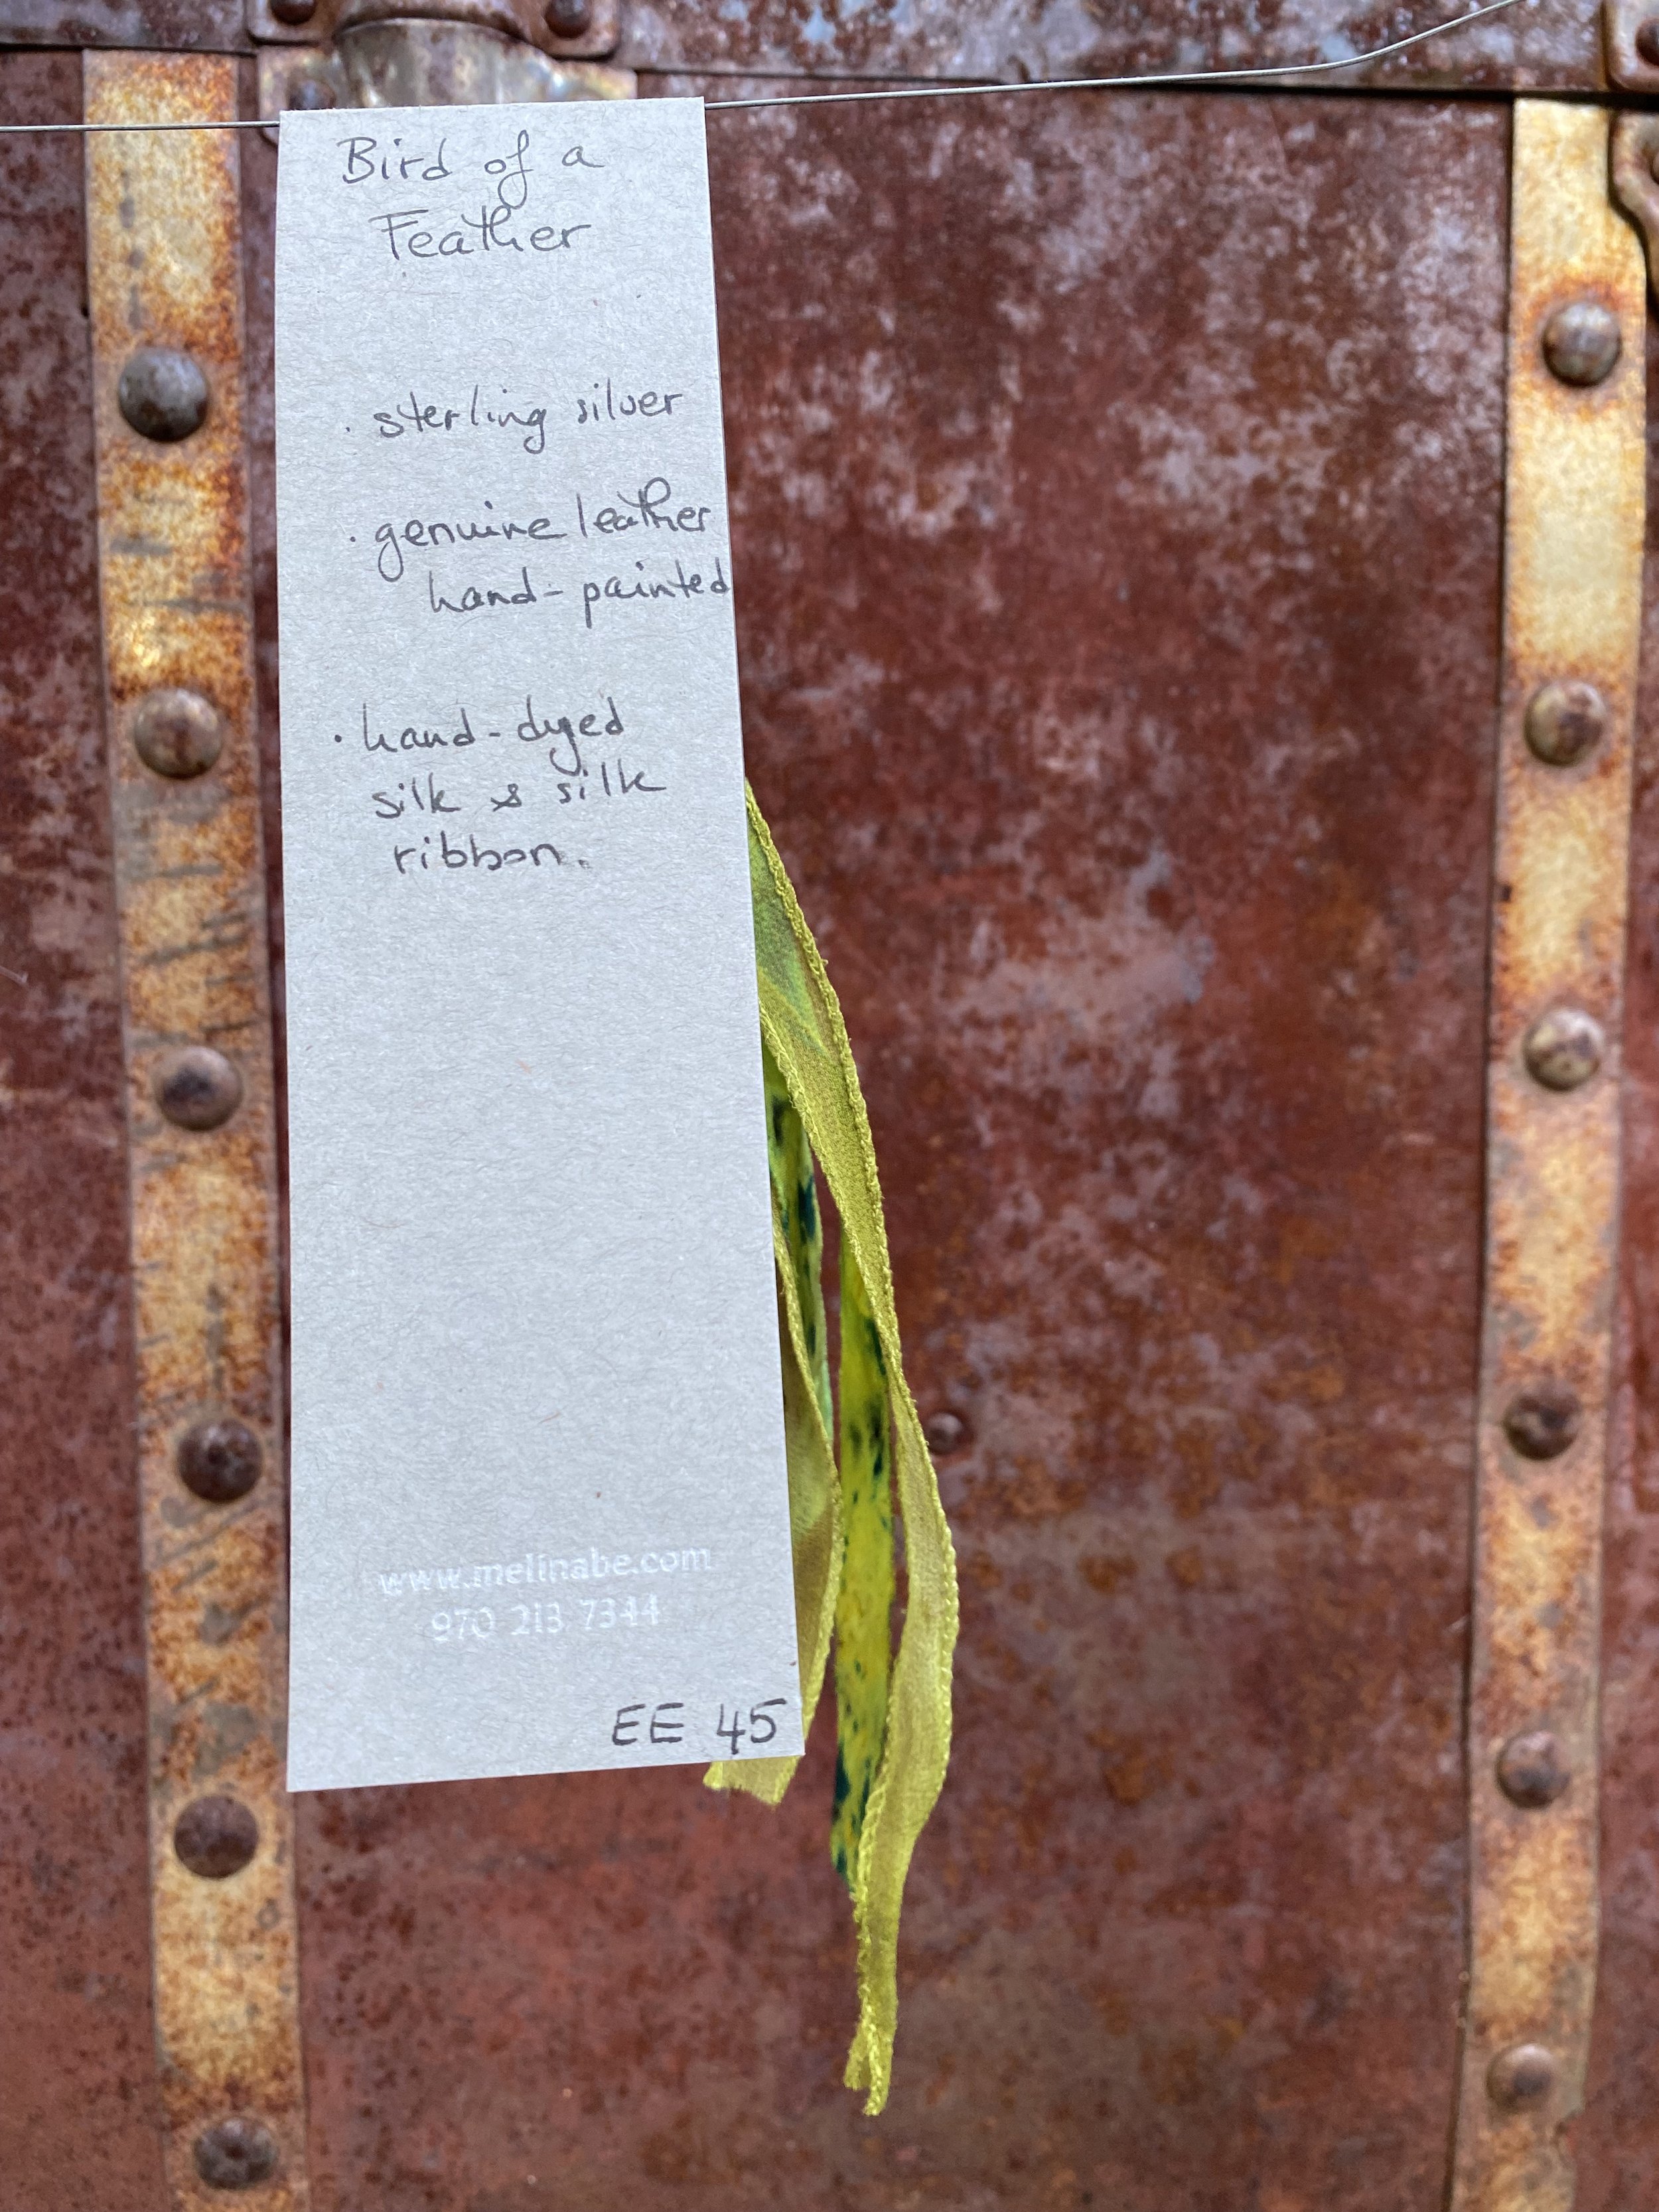 Bird of a
Feather
· sterling silver
· genuine leather
hand-painted
· hand-dyed
silk & silk
ribbon.
www.melinabe.com
970 213 7344
EE 45